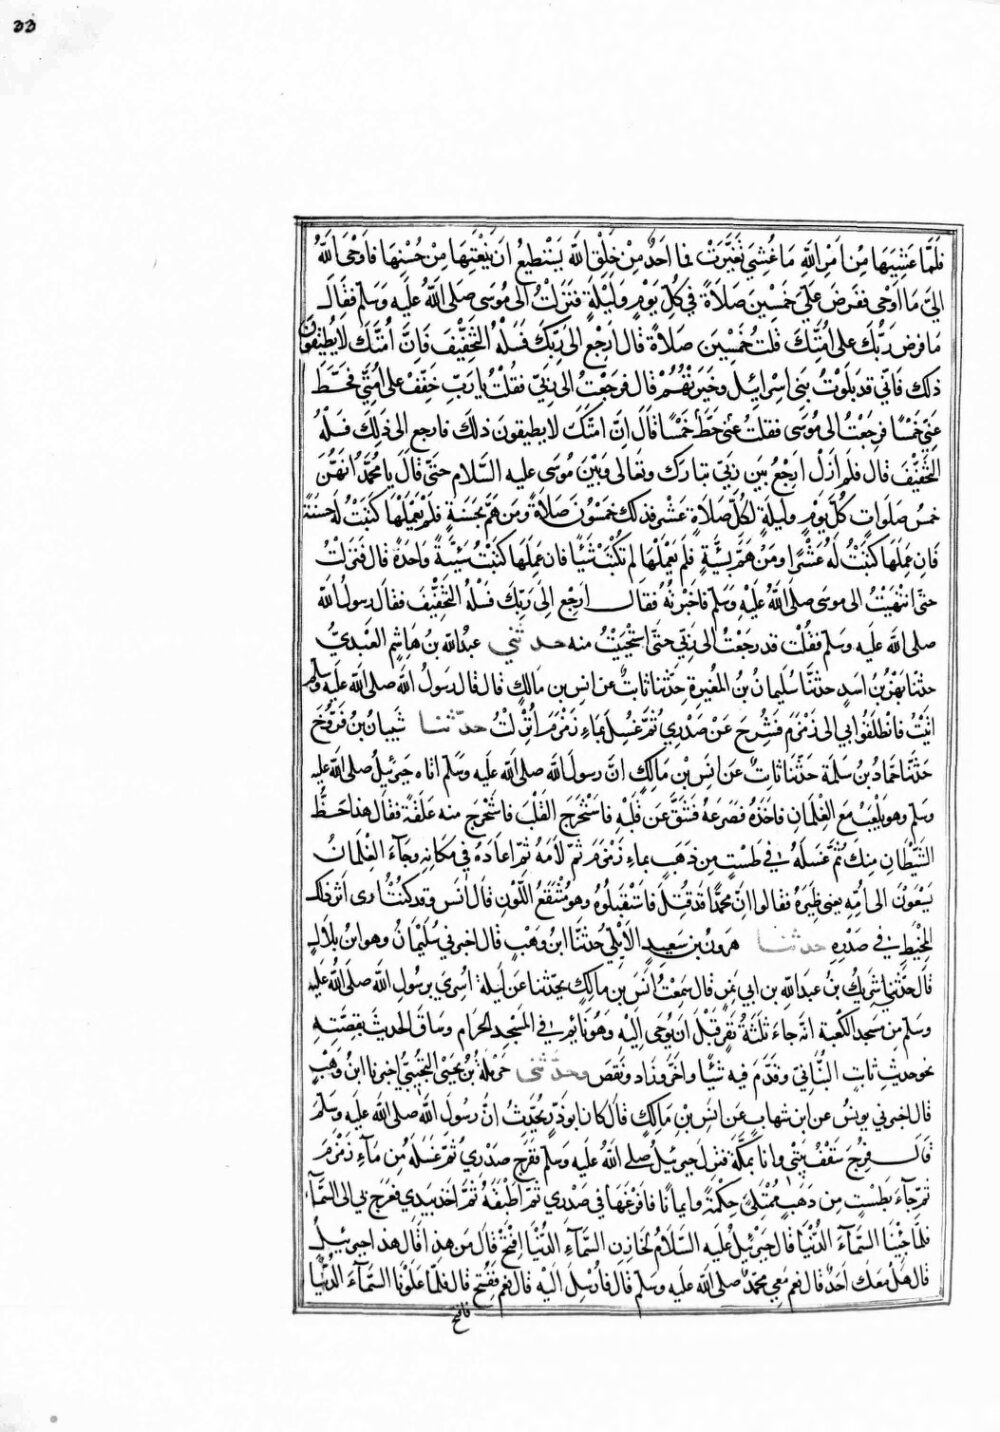 33
فَلَمَّا غَشِيَهَا مِنْ اَمْرِ اللّٰهِ مَا غُشِيَ تَغَيَّرَتْ فما اَحَدٌ مِنْ خَلْقِ اللّٰه يَسْتَطِيعُ اَنْ يَنْعَتَهَا مِنْ حُسْنِهَا فاَوْحَى اللّٰهُ
اِلَيَّ مَا اوْحى ففَرضَ عَلَيَّ خَمْسِينَ صَلَاةً في كلِّ يَوْمٍ وَلَيْلَةٍ فنَزَلْتُ الى مُوسَى صلى اللّٰهُ عليه وَسَلم فقال
مَا فرض رَبُّكَ على اُمَّتِكَ قلت خَمْسِينَ صَلاةً قالَ ارْجِعْ الى رَبِّكَ فَسَلْهُ التَّخْفِيْفَ فَاِنَّ اُمَّتَكَ لا يُطِيْقُونَ
ذلك فَاِنّي قد بَلَوْتُ بَنِي اِسْرائيلَ وخَبَرْتُهُمْ قالَ فرَجَعْتُ الى رَبِّي فقُلْتُ يا رَبِّ خَفِّفْ على اُمَّتِي فحَطَّ
عَنِّي خَمْسًا فرَجَعْتُ الى مُوسَى فقلتُ حَطَّ عنّي خَمْسًا قَالَ اِنَّ امتَكَ لا يطيقونَ ذلكَ فارجع الى رَبِّكَ فَسَلْهُ
التَّخْفِيْفَ قال فلم ازَلْ ارْجِعُ بَين رَبّي تبارك وتعَالى وَبَيْنَ مُوسَى عليه السَّلام حَتّى قالَ يا مُحَمَّدُ انهُنَّ
خمسُ صَلَواتٍ كُلَّ يَوْمٍ وليلةٍ لكُلّ صَلَاةٍ عَشْر فذلكَ خَمْسُونَ صَلاةً ومَن هَمَّ بحَسَنَةٍ فلم يَعْمَلْهَا كُتِبَتْ له حَسَنَةً
فَاِن عَمِلَهَا كُتِبَتْ لَهُ عَشْرًا ومَنْ هَمَّ بِسَيِّئَةٍ فلَم يَعْمَلْهَا لم تُكْتَبْ شَيْئًا فان عَمِلَهَا كُتِبَتْ سَيّئَةً وَاحدَةً قال فنَزَلْتُ
حتّى انْتَهَيْتُ الى موسى صلى اللّٰهُ عَلَيْهِ وَسَلّم فاخبرتُهُ فقال ارجِع اِلىَ رَبّكَ فَسَلْهُ التَّخْفِيْفَ فقال رسولُ اللّٰه
صلى اللّٰه عليه وسلم فقُلْت قد رجَعْتُ الى رَبّي حتى اسْتَحْيَيْتُ منه حدثني عبدُ اللّٰه بنُ هاشِمٍ العَبْديُّ
حدثنا بَهْزُ بنُ اسَدٍ حدثنَا سُليمانُ بنُ المُغيرةِ حَدّثنا ثابتٌ عَن انس بن مالكٍ قال قال رَسولُ اللّٰه صلى اللّٰه عليه وسلم
اتيْتُ فانطلَقُوا بي الى زَمْزَمَ فشُرِحَ عَنْ صَدْرِي ثُمَّ غُسِلَ بمَاءِ زَمْزَمَ ثم اُنْزِلْتُ حدّثنا شيبانُ بنُ فَرُّوخَ
حَدَّثنَا حَمّادُ بن سلمة حدّثنا ثابتٌ عَنْ انَسِ بْنِ مَالِكٍ انّ رسولَ اللّٰه صلى اللّٰه عليه وَسلم اتاه جبرئيلُ صلى اللّٰهُ عليه
وَسَلم وهو يَلْعَبُ مَعَ الغِلْمانِ فاخَذَهُ فصَرَعَهُ فشَقَّ عَن قَلْبِهِ فاستَخْرَجَ القَلْبَ فاسْتَخْرج منه عَلَقَةً فقال هذا حَظُّ
الشّيْطَانِ مِنْكَ ثُمّ غَسَلَهُ في طَسْتٍ مِن ذَهَبٍ بماءِ زَمْزَمَ ثمّ لاَمَهُ ثمّ اعادَهُ في مَكَانِهِ وجَآءَ الغِلْمَانُ
يَسْعَوْنَ الى اُمِّهِ يعني ظِئْرَهُ فقالوا انّ مُحمدًا قد قُتِلَ فاسْتَقْبَلُوهُ وهو مُنْتَقَعُ اللّوْنِ قال انَس وقد كُنْتُ ارى اثرَ ذلك
المِخْيَطِ في صَدْرِهِ حدثنا هَرونُ بنُ سَعِيدٍ الاَيْلِيُّ حدّثنَا ابنُ وَهْبٍ قال اخبرني سُلَيْمَانُ وهو ابنُ بلالٍ
قال حَدّثني شَرِيكُ بنُ عبد اللّٰهِ بن ابي نَمِرٍ قال سَمِعْتُ انَسَ بن مالكٍ يحدّثنا عَنْ لَيلةِ اُسْرِيَ برسُولِ اللّٰه صلى اللّٰهُ عليه
وسَلم من مَسجدِ الكعْبةِ انه جاءَ ثَلثَةُ نفَرٍ قَبْلَ ان يُوحَى اِلَيْهِ وَهُوَ نَائِمٌ في المَسْجدِ الحَرامِ وساقَ الحديثَ بقصَّتِهِ
نحو حديثِ ثابتٍ البُنَانيّ وقدّمَ فيه شيْئًا واخّرَ وَزَادَ ونَقَصَ وحدّثني حَرْمَلةُ بنُ يَحيى التُّجِيبيُّ اخبرنا ابنُ وَهْبٍ
قالَ اخبرني يونسُ عن ابن شهابٍ عن انَسِ بنِ مَالكٍ قالَ كانَ ابو ذَرٍّ يُحَدِّثُ انّ رَسولَ اللّٰه صلى اللّٰه عليه وسلم
قَالَ فُرِجَ سَقْفُ بَيْتِي وانا بمكَّةَ فنزلَ جبرئيلُ صلى اللّٰه عليه وَسلم ففَرَجَ صَدْرِي ثمّ غَسَلَهُ مِن مَآءِ زَمْزَمَ
ثم جَآءَ بطَسْتٍ مِن ذَهَبٍ مُمْتَلِئٍ حِكْمَةً وايمانًا فافرَغَهَا في صَدْرِي ثمّ اطْبَقَهُ ثمّ اخذ بيَدي فعَرَجَ بي الى السّمآءِ
فلمّا جِئنَا السّمآءَ الدُّنْيَا قال جبْرَئيلُ عليه السّلامُ لخازِنِ السّمآءِ الدُّنْيا افتَحْ قالَ مَن هذا قَالَ هَذا جبرئيلُ
قالَ هَلْ مَعَكَ اَحَدٌ قال نَعَم مَعِي محمّدٌ صلى اللّٰه عليه وَسَلّم قال فاُرْسِلَ اليْهِ قال نعم ففُتِحَ قال فلَمّا عَلَوْنَا السّمآءَ الدُّنيَا
فافتح